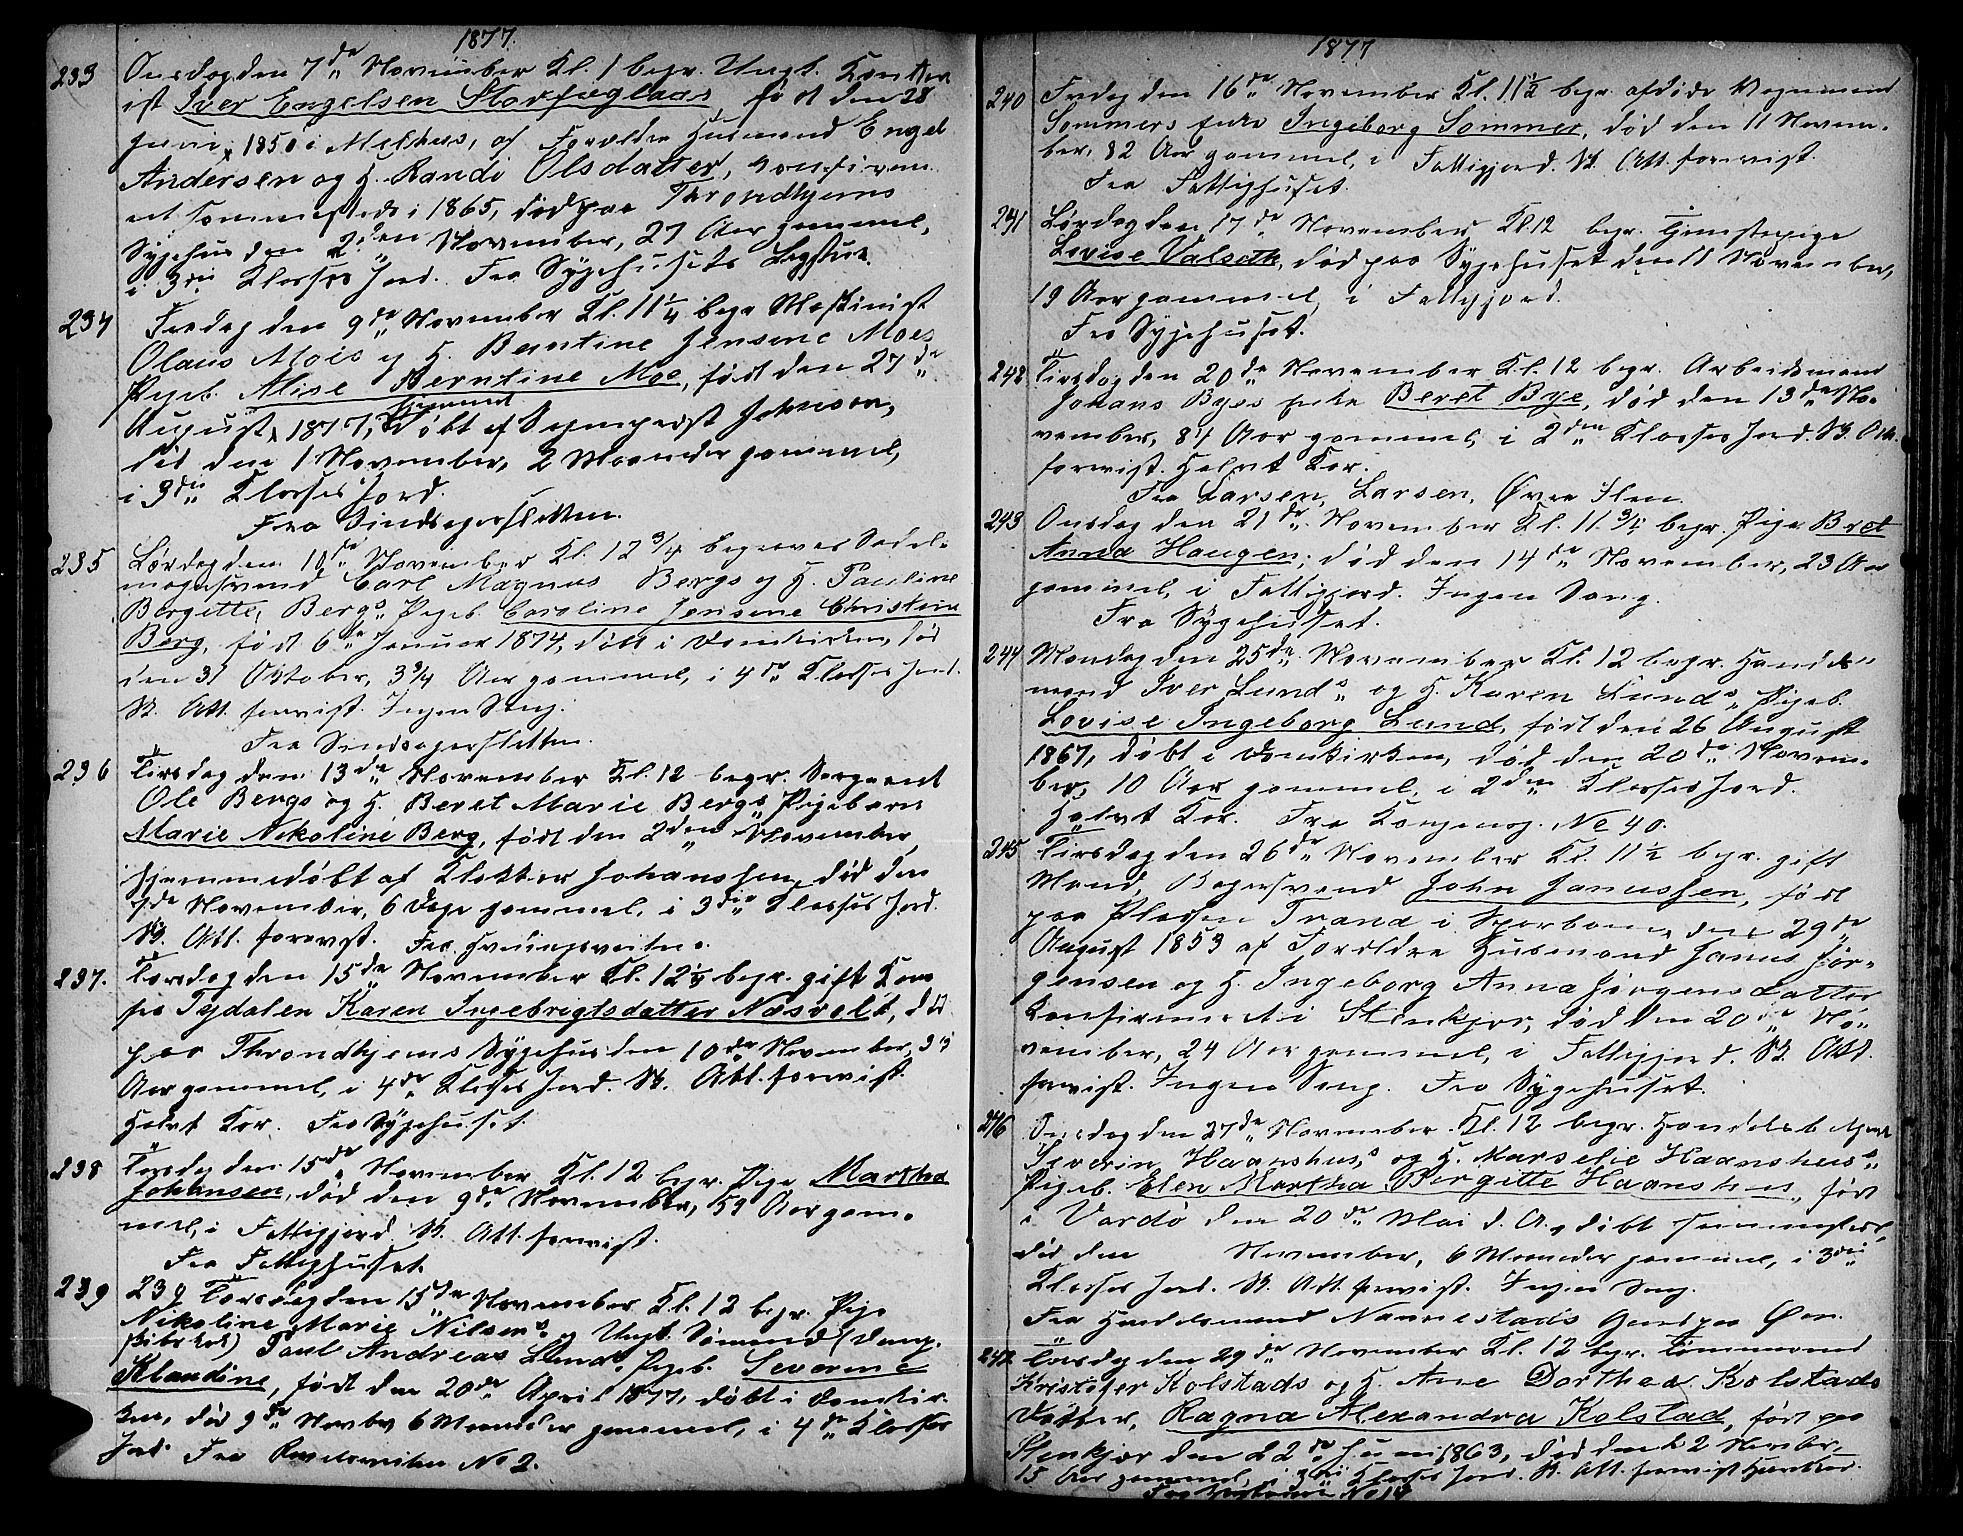 1877.
233 Onsdag den 7de November Kl. 1 begr. Ungk. Kontor
ist Iver Engelsen Storfuglaas, født den 28
Juni 1850 i Melhus, af Forældre Husmand Engel
Andersen og H. Randi Olsdatter, konfirm
ert sammesteds i 1865, død paa Throndhjems
Sygehus den 2den November, 27 Aar gammel,
i 3die Klasses Jord. Fra Sygehusets Ligstue.
234 Fredag den 9de November Kl. 11 1/4 begr. Maskinist
Olaus Moes og H. Berntine Jensine Moes
Pigeb. Alise Berntine Moe, født den 27de
August 1877, hjemmedøbt af Johnson,
død den 1 November, 2 Maaneder gammel,
i 3die Klasses Jord.
Fra Sindsagersletten.
235 Lørdag den 10de November Kl. 12 3/4 begraves Sadel-
magersvend Carl Magnus Bergs og H. Pauline
Bergette Bergs Pigeb. Caroline Jensine Christine
Berg, født 6te Januar 1874, døbt i Domkirken, død
den 31 Oktober, 3 3/4 Aar gammel, i 4de Klasses Jord.
Sk. Att. forevist. Ingen Sang.
Fra Sindsagersletten.
236 Tirsdag den 13de November Kl. 12 begr. Sergeant
Ole Bergs og H. Beret Marie Bergs Pigebarn
Marie Nikoline Berg, født den 2den November,
hjemmedøbt af Klokker Johanssen, død den
7de November, 6 Dage gammel, i 3die Klasses Jord.
Sk. Att. forevist. Fra
237. Torsdag den 15de November Kl. 12 1/4 begr. gift Kone
fra Tydalen Karen Ingebrigtsdatter Næsvold, død
paa Throndhjems Sygehus den 10de November, 39
Aar gammel, i 4de Klasses Jord. Sk. Att. forevist.
Halvt Kor. Fra Sygehuset.
238 Torsdag den 15de November Kl. 12 begr. Pige Martha
Johansen, død den 9de November, 59 Aar gam-
mel, i Fattigjord. Sk. Att. forevist.
Fra Fattighuset.
239 239 Torsdag den 15de November Kl. 12 begr. Pige
Nikoline Marie Nilsens og Ungk. Sømand (Damp-
skibsled) Paul Andreas Lunds Pigeb. Severine
Klaudine, født den 20de April 1877, døbt i Domkir-
ken, død 9de Novbr, 6 Maaneder gammel, i 4de Klasses
Jord. Fra No 2.
1877
240 Fredag den 16de November Kl. 11 1/2 begr. afdøde Vognmand
Sommers Enke Ingeborg Sommer, død den 11 Novem-
ber, 82 Aar gammel, i Fattigjord. Sk. Att. forevist.
Fra Fattighuset.
241 Lørdag den 17de November Kl. 12 begr. Tjenestepige
Lovise Valseth, død paa Sygehuset den 11 November,
19 Aar gammel, i Fattigjord.
Fra Sygehuset.
242 Tirsdag den 20de November Kl. 12 begr. Arbeidsmand
Johans Byes Enke Beret Bye, død den 13de No-
vember, 81 Aar gammel, i 2den Klasses Jord. Sk. Att.
forevist. Halvt Kor.
Fra Larsen, Larsen, Øvre Ilen.
243 Onsdag den 21de November Kl. 11 3/4 begr. Pige Bret
Anna Haugen, død den 14de November, 23 Aar
gammel, i Fattigjord. Ingen Sang.
Fra Sygehuset.
244 Mandag den 25de November Kl. 12 begr. Handels-
mand Iver Lunds og H. Karen Lunds Pigeb.
Lovise Ingeborg Lund, født den 26 August
1867, døbt i Domkirken, død den 20de Novem-
ber, 10 Aar gammel, i 2den Klasses Jord.
Halvt Kor. Fra Kongensg. No 40.
245 Tirsdag den 26de November Kl. 11 1/2 begr. gift
Mand, Bagersvend John Janussen, født
paa Pladsen Trana i Sparboen, den 29de
August 1853 af Forældre Husmand Janus Jør-
gensen og H. Ingeborg Anna Jørgensdatter
Konfirmeret i Stenkjær, død den 20de No-
vember, 24 Aar gammel, i Fattigjord. Sk. Att.
forevist. Ingen Sang. Fra Sygehuset.
246 Onsdag den 27de November Kl. 12 begr. Handelsb
Severin Haanshus's og H. Marselie Haanshus's
Pigeb. Elen Martha Birgitte Haanshus, født
i Vardø den 20de Mai d. A., døbt sammesteds,
død den November, 6 Maaneder gammel, i 3die
Klasses Jord. Sk. Att. forevist. Ingen Sang.
Fra Handelsmand Nannestads Gaard paa Øren.
247 Torsdag den 29de November Kl. 12 begr. Tømmermand
Kristofer Kolstads og H. Ane Dorthea Kolstads
Datter, Ragna Alexandra Kolstad, født paa
Stenkjær den 22de Juni 1863, død den 22 Novbr.
15 Aar gammel, i 3die Klasses Jord. Sk. Att. forevist
Fra No 14